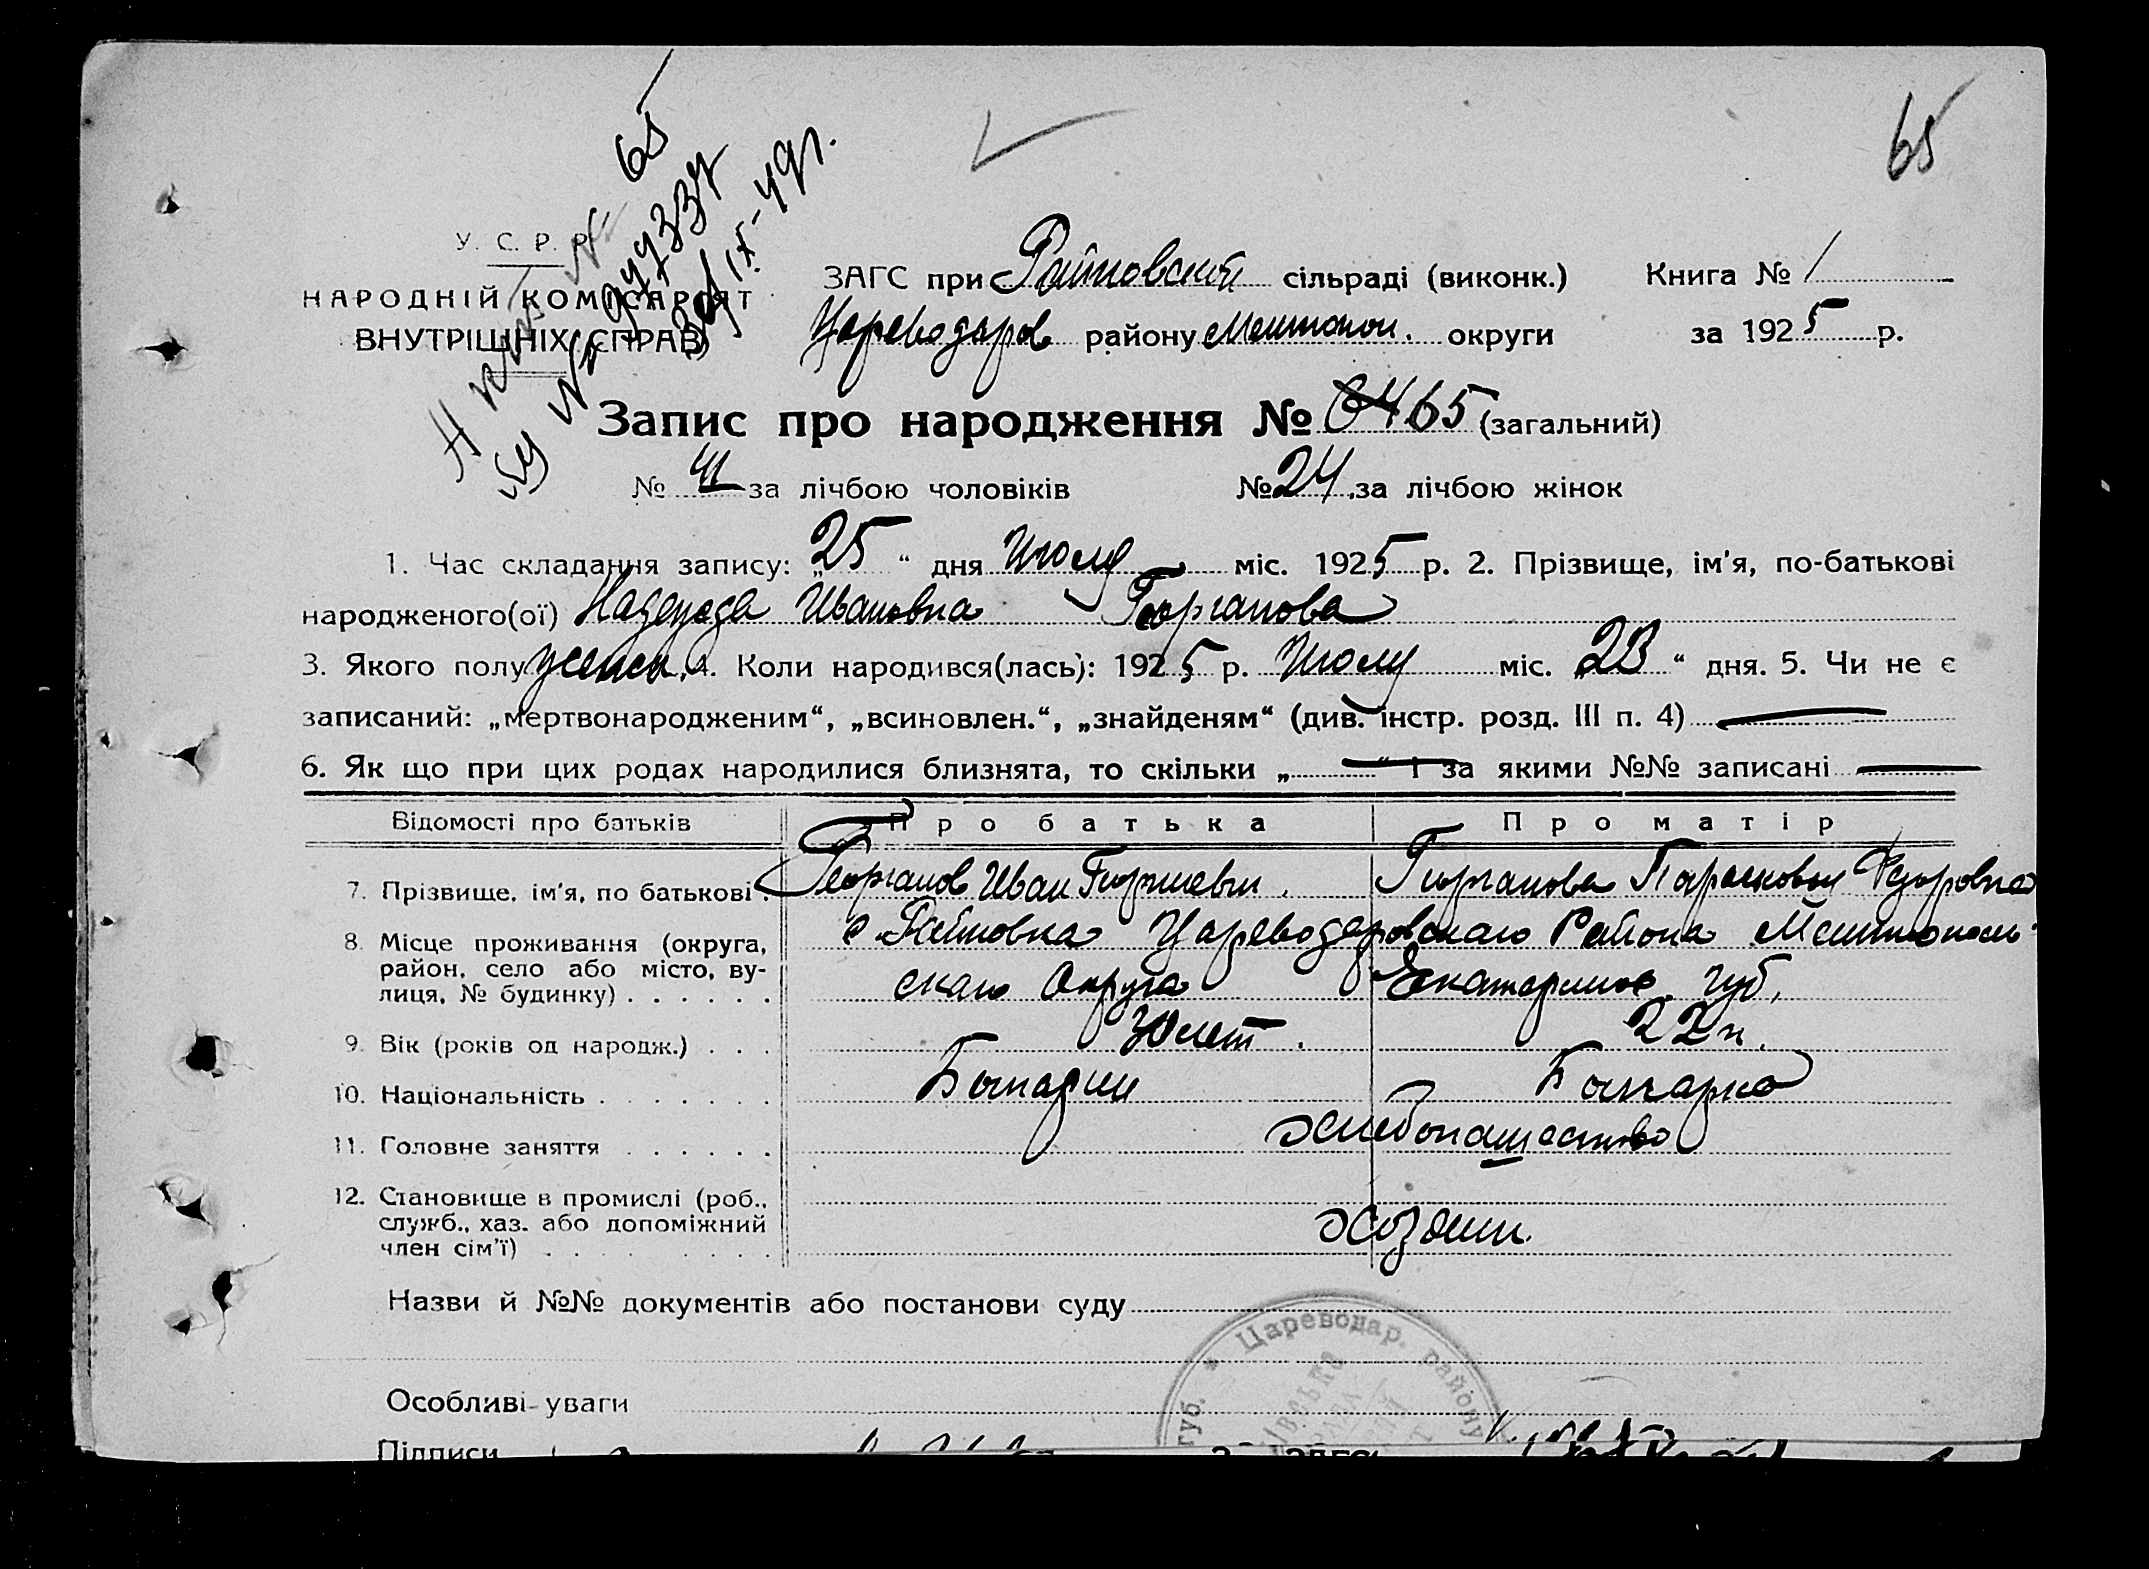 65
65
У. С. Р. Р.
НАРОДНІЙ КОМІСАРІЯТ
ВНУТРІШНІХ СПРАВ
ЗАГС при Райновский сільраді (виконк.) Книга № 1
Цареводаров району Мелитопол. округи за 1925 р.
Запис про народження № 64 65 (загальний)
№ 41 за лічбою чоловіків № 24 за лічбою жінок
1. Час складання запису: „25“ дня Июля міс. 1925 р. 2. Прізвище, ім'я, по-батькові
народженого(ої) Надежда Ивановна Георганова
3. Якого полу женск. 4. Коли народився(лась): 1925 р. Июля міс. „23“ дня. 5. Чи не є
записаний: „мертвонародженим“, „всиновлен.“, „знайденям“ (див. інстр. розд. III п. 4)
6. Як що при цих родах народилися близнята, то скільки „ “ і за якими №№ записані
Відомості про батьків Про батька Про матір
7. Прізвище, ім'я, по батькові. Георганов Иван Георгиевич. Георганова Парасковья Федоровна
8. Місце проживання (округа, район, село або місто, ву-лиця, № будинку) с. Райновка Цареводаровскаго Района Мелитополь-
скаго Округа Екатеринос. губ.
9. Вік (років од народж.) 30 лет. 22 л.
10. Національність Болгарин Болгарка
11. Головне заняття хлебопашество
12. Становище в промислі (роб., служб., хаз. або допоміжний член сім'ї) хозяин.
Назви й №№ документів або постанови суду
губ. * Цареводар. району
Особливі уваги
Підписи